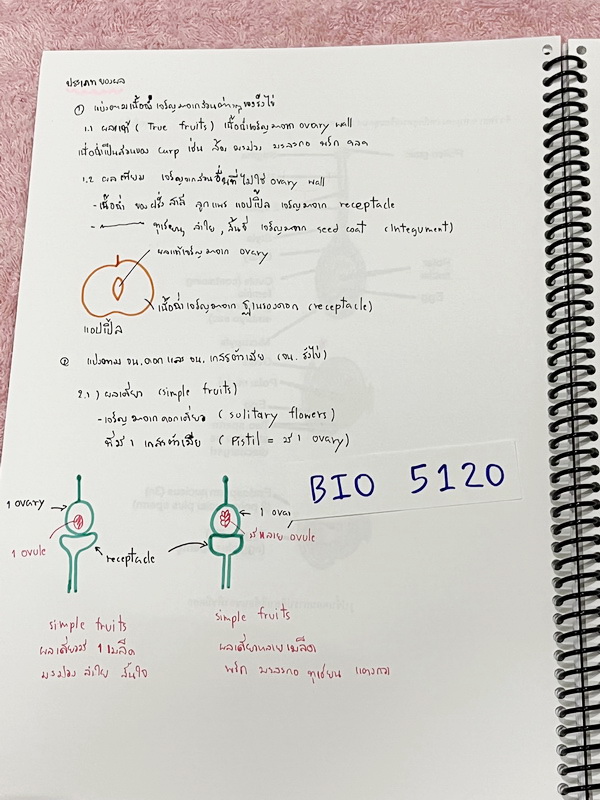 ประเภทของผล
① แบ่งตามเนื้อที่เจริญมาจากส่วนต่างๆของรังไข่
1.1 ผลแท้ (True fruits) เนื้อที่เจริญมาจาก ovary wall
เนื้อที่เป็นส่วนของ carp เช่น ส้ม มะม่วง มะละกอ พริก
1.2 ผลเทียม เจริญจากส่วนอื่นที่ไม่ใช่ ovary wall
- เนื้อที่ ของฝรั่ง สาลี่ ลูกแพร แอปเปิ้ล เจริญมาจาก receptacle
- ทุเรียน, ลำไย, ลิ้นจี่ เจริญมาจาก seed coat (Integument)
ผลแท้เจริญมาจาก ovary
เนื้อที่เจริญมาจาก ฐานรองดอก (receptacle)
แอปเปิ้ล
② แบ่งตาม จน.ดอก และ จน. เกสรตัวเมีย (จน. รังไข่)
2.1) ผลเดี่ยว (simple fruits)
- เจริญมาจากดอกเดี่ยว (solitary flowers)
ที่มี 1 เกสรตัวเมีย (Pistil = มี 1 ovary)
BIO 5120
1 ovary
1 ova
1 ovule
มีหลาย ovule
receptacle
simple fruits
simple fruits
ผลเดี่ยวมี 1 เมล็ด
ผลเดี่ยวหลายเมล็ด
มะม่วง ลำไย ลิ้นจี่
พริก มะละกอ ทุเรียน แตงกวา